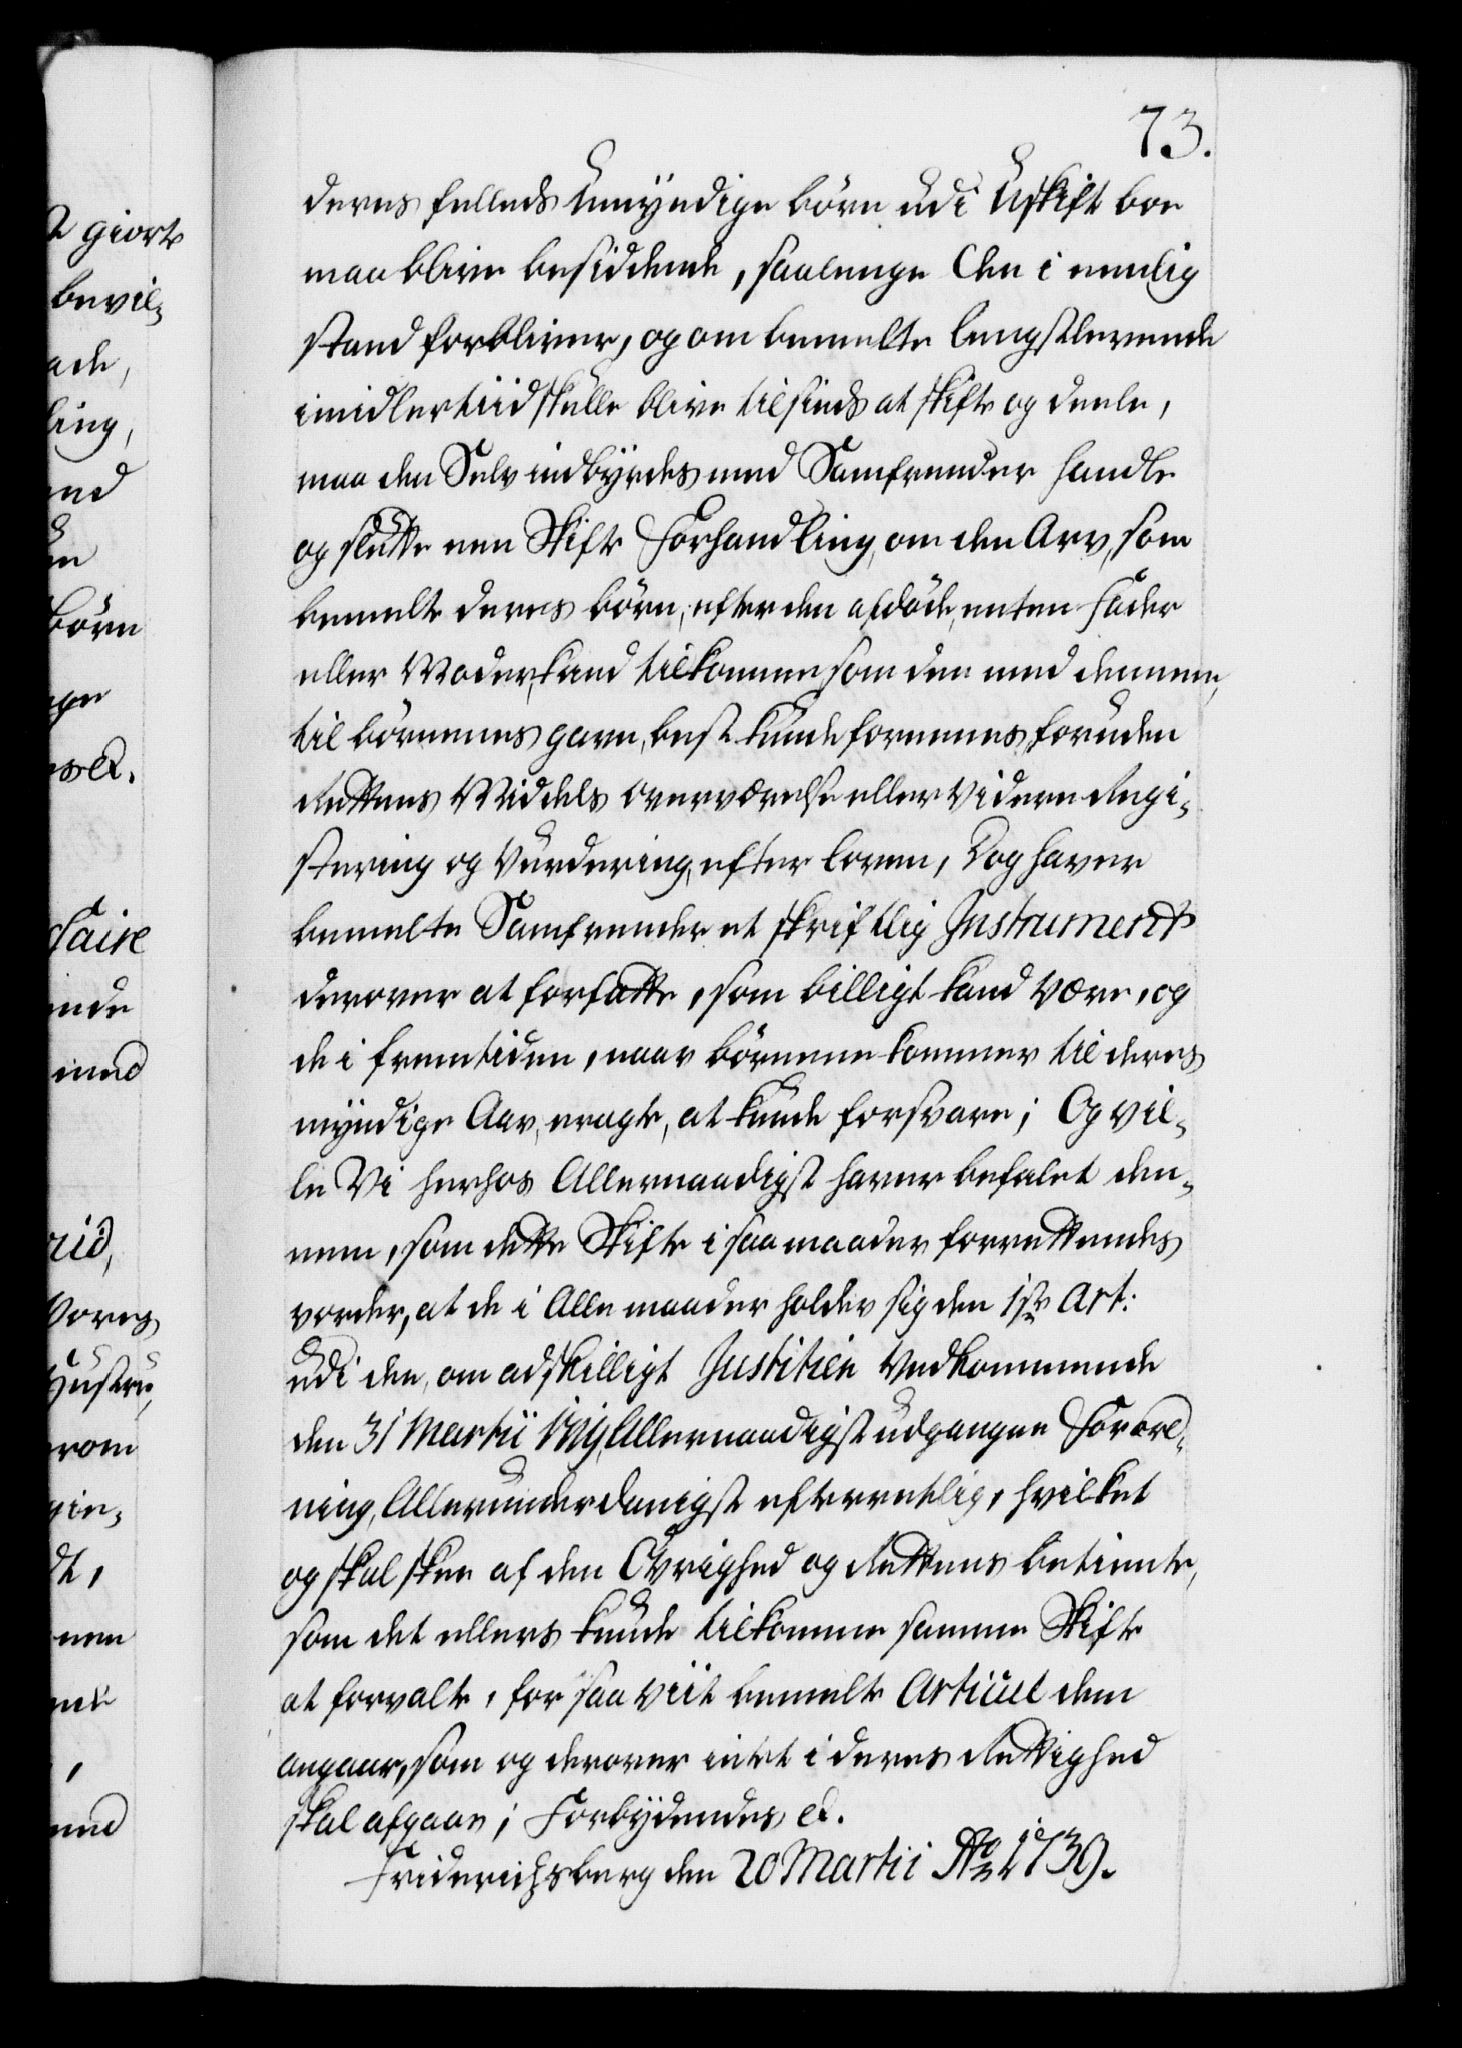 73.
deres felleds umÿndige börn udi Uskift boe
maa blive besiddende, saalenge den i eenlig
stand forbliver, og om bemelte lengstlevende
imidlertiid skulle blive tilsinds at skifte og deele,
maa den Selv indbÿrdes med Samfrender handle
og slutte een Skifte Forhandling, om den Arv, som
bemelte deres börn, efter den afdöde, enten Fader
eller Moder, kand tilkomme som den med dennem,
til börnenes gavn, best kunde foreenes, foruden
Rettens Middels overværelse eller videre Regi-
stering og Vurdering, efter loven, Dog haver
bemelte Samfrender et skriftlig Instrument
derover at forfatte, som billigt kand være, og
de i fremtiden, naar börnene kommer til deres
mÿndige Aar, eragte, at kunde forsvare; Og vil-
le Vi herhos Allernaadigst haver befalet den-
nem, som dette Skifte i saa maader forrettendes
vorder, at de i Alle maader holder sig den 1ste Art:
udi den, om adskilligt Justitien Vedkommende
den 31 Martii 1719, Allernaadigst udgangne Forord-
ning, Allerunderdanigst efterretlig, hvilket
og skal skee af den Övrighed og Rettens betiente,
som det ellers kunde tilkomme samme Skifte
at forvalte, for saa viit bemelte Articul dem
angaar, som og derover intet i deres Rettighed
skal afgaae; Forbÿdendes et.
Friderichsberg den 20 Martii Ao 1739.